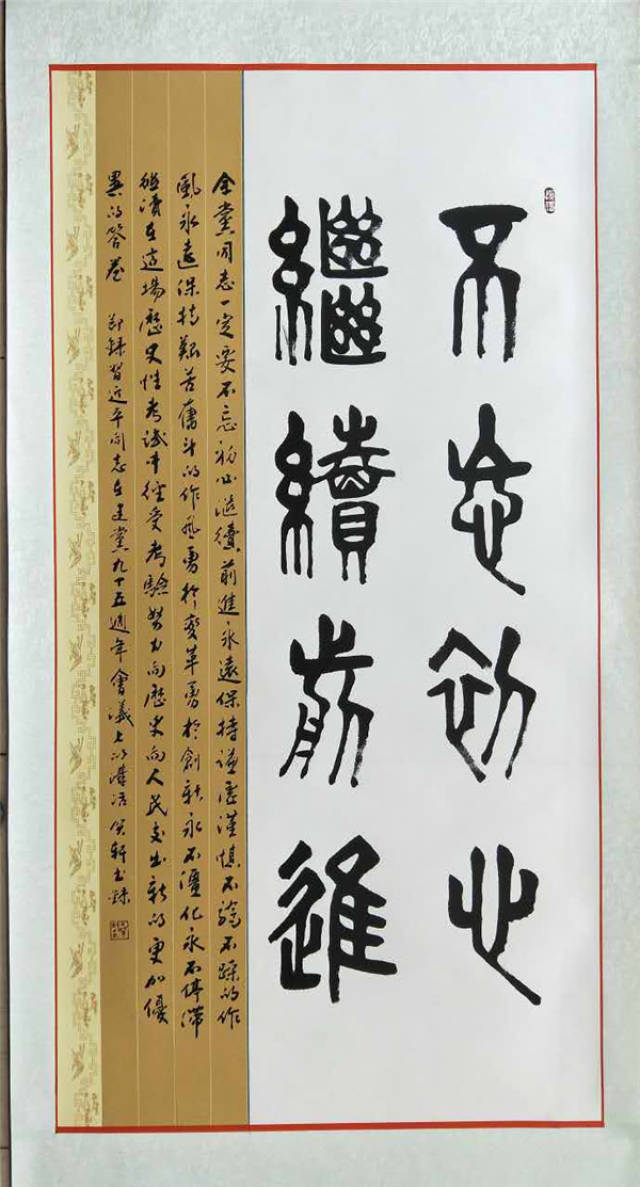 不忘初心
繼續前進
全黨同志一定要不忘初心繼續前進永遠保持謙虛謹慎不驕不躁的作
風永遠保持艱苦奮鬥的作風勇於變革勇於創新永不僵化永不停滯
繼續在這場歷史性考試中經受考驗努力向歷史向人民交出新的更加優
異的答卷 節錄習近平同志在建黨九十五週年會議上的講話 軒書錄